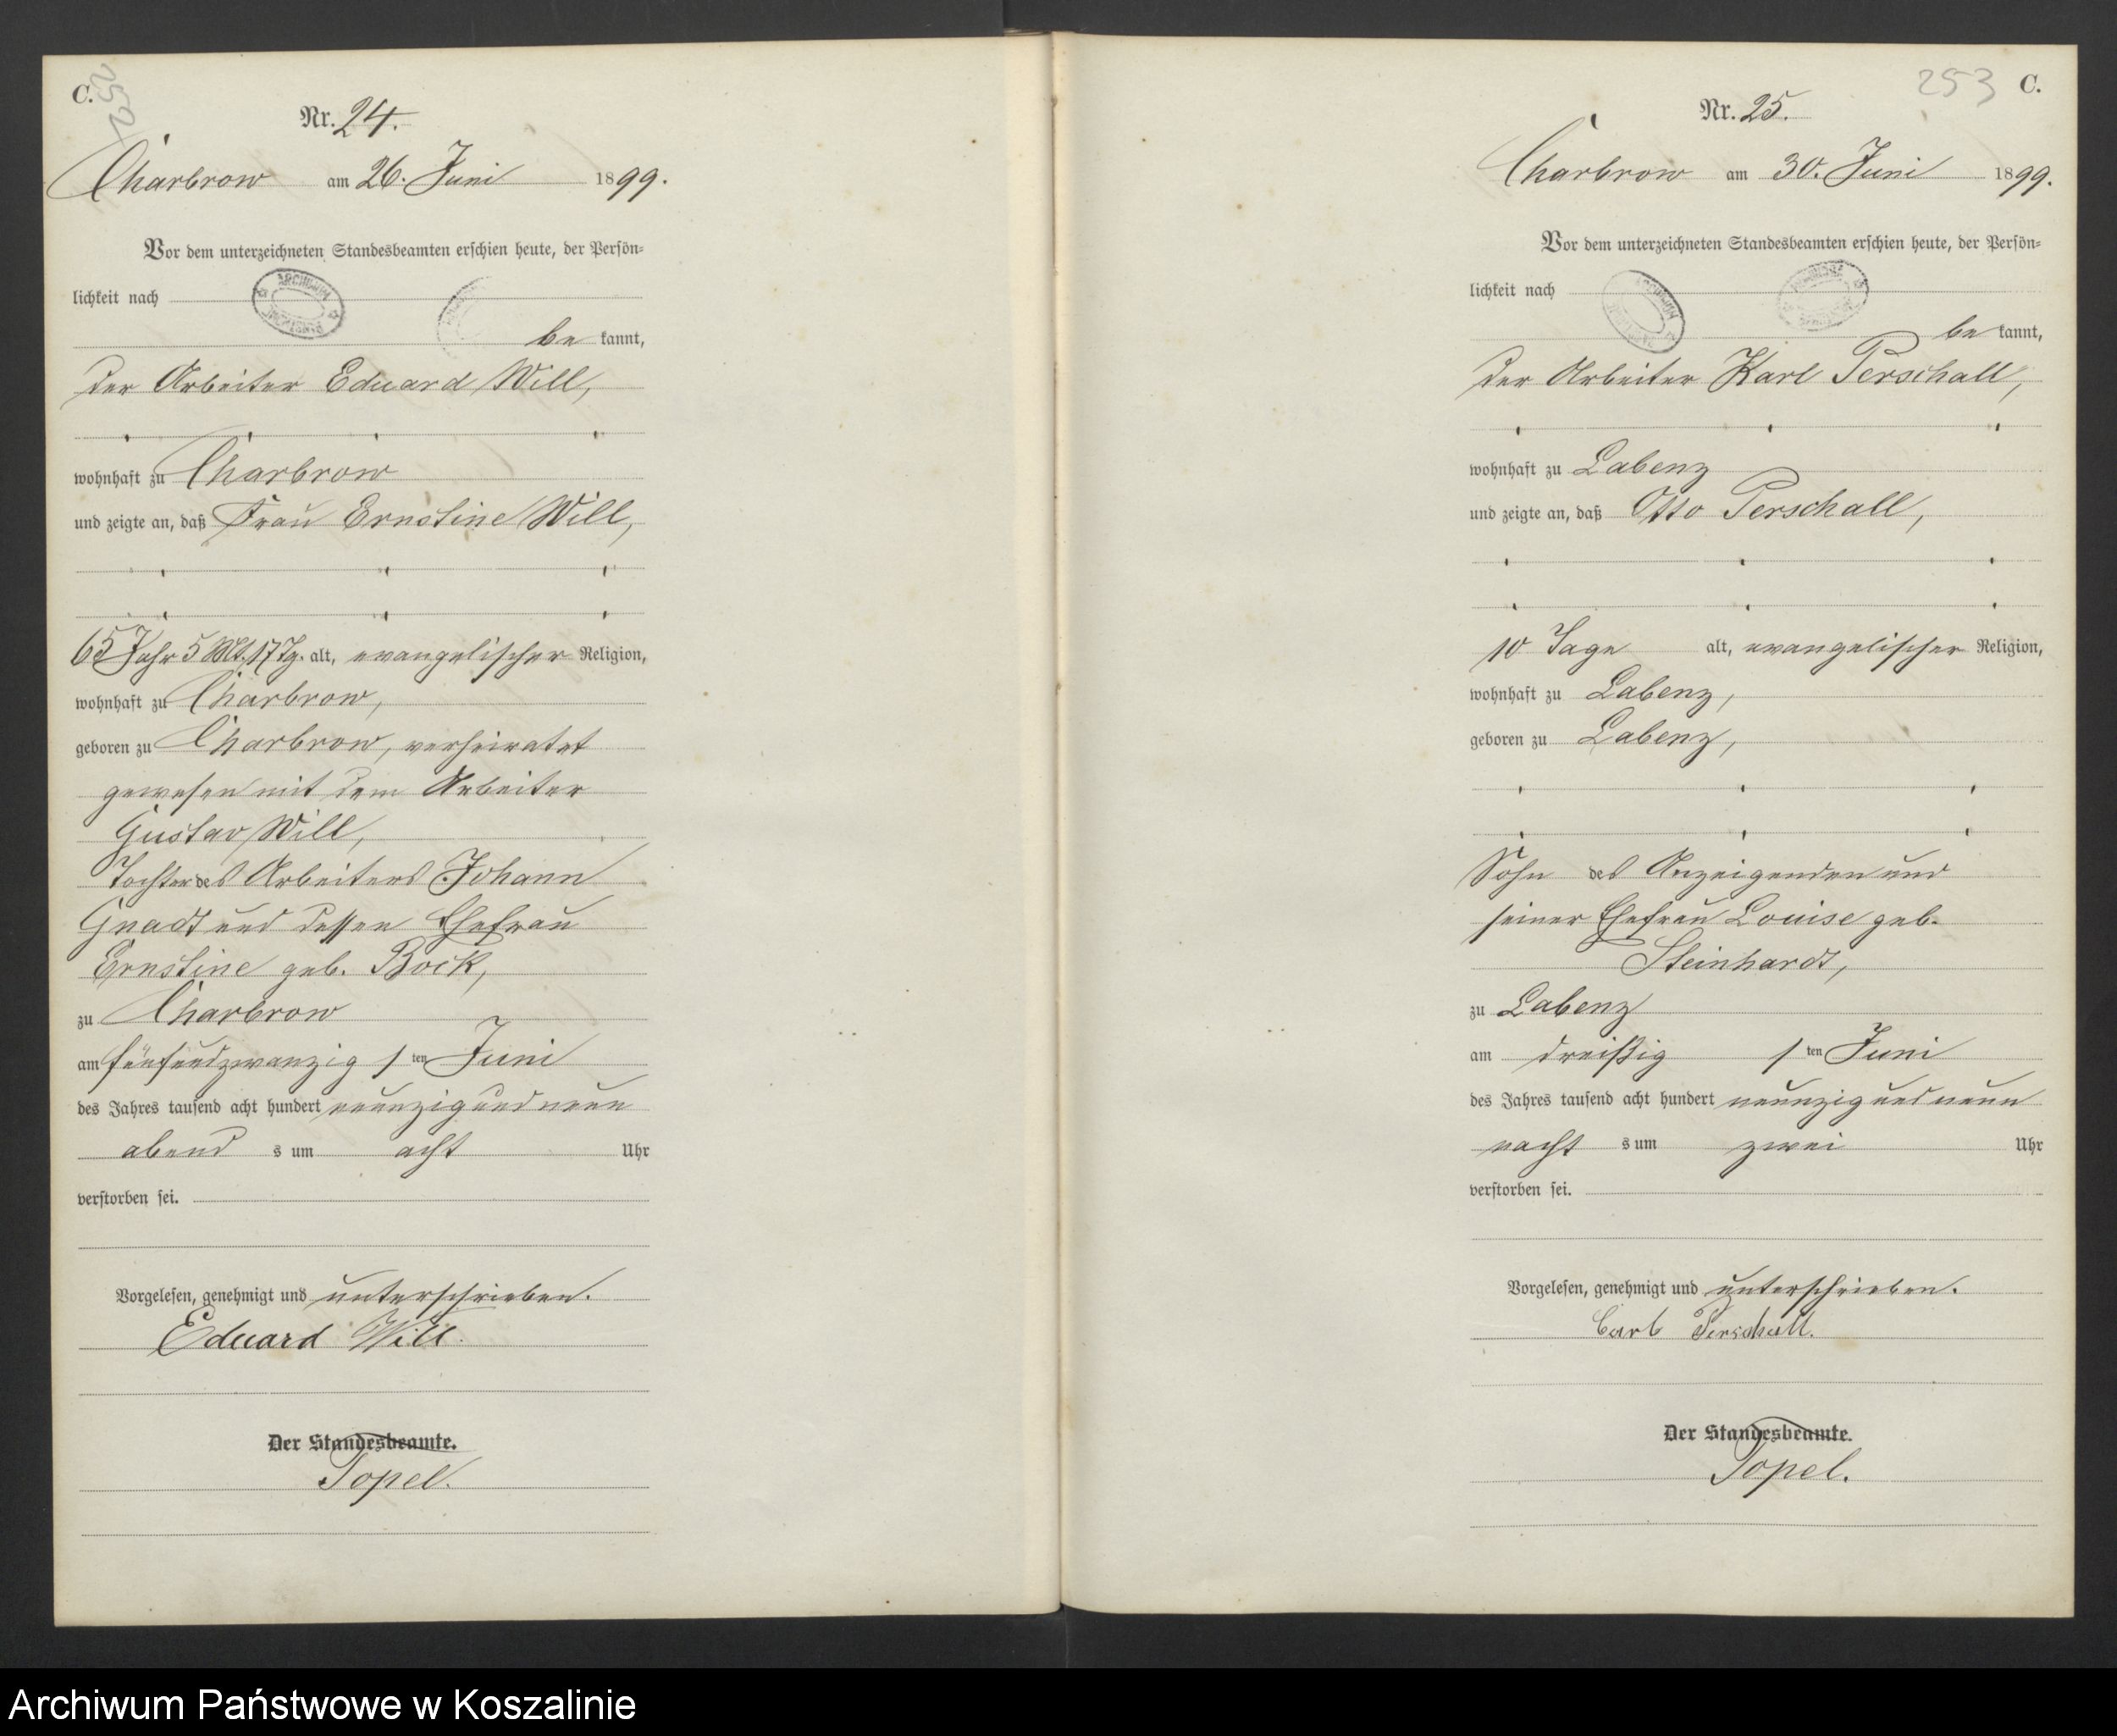 C.
252
Nr. 24.
Charbrow am 26. Juni 1899.
Vor dem unterzeichneten Standesbeamten erschien heute, der Persön=
lichkeit nach
be kannt,
der Arbeiter Eduard Will,
wohnhaft zu Charbrow
und zeigte an, daß Frau Ernstine Will,
65 Jahr 5 Mt. 17 Tg. alt, evangelischer Religion,
wohnhaft zu Charbrow,
geboren zu Charbrow, verheiratet
gewesen mit dem Arbeiter
Gustav Will,
Tochter des Arbeiters Johann
Gnadt und dessen Ehefrau
Ernstine geb. Bock,
zu Charbrow
am fünfundzwanzig ten Juni
des Jahres tausend acht hundert neunzig und neun
abend s um acht Uhr
verstorben sei.
Vorgelesen, genehmigt und unterschrieben.
Eduard Will.
Der Standesbeamte.
Topel.
253 C.
Nr. 25.
Charbrow am 30. Juni 1899.
Vor dem unterzeichneten Standesbeamten erschien heute, der Persön=
lichkeit nach
be kannt,
der Arbeiter Karl Perschall,
wohnhaft zu Labenz
und zeigte an, daß Otto Perschall,
10 Tage alt, evangelischer Religion,
wohnhaft zu Labenz,
geboren zu Labenz,
Sohn des Anzeigenden und
seiner Ehefrau Louise geb.
Steinhardt,
zu Labenz
am dreißig ten Juni
des Jahres tausend acht hundert neunzig und neun
nacht s um zwei Uhr
verstorben sei.
Vorgelesen, genehmigt und unterschrieben.
Carl Perschall.
Der Standesbeamte.
Topel.
Archiwum Państwowe w Koszalinie